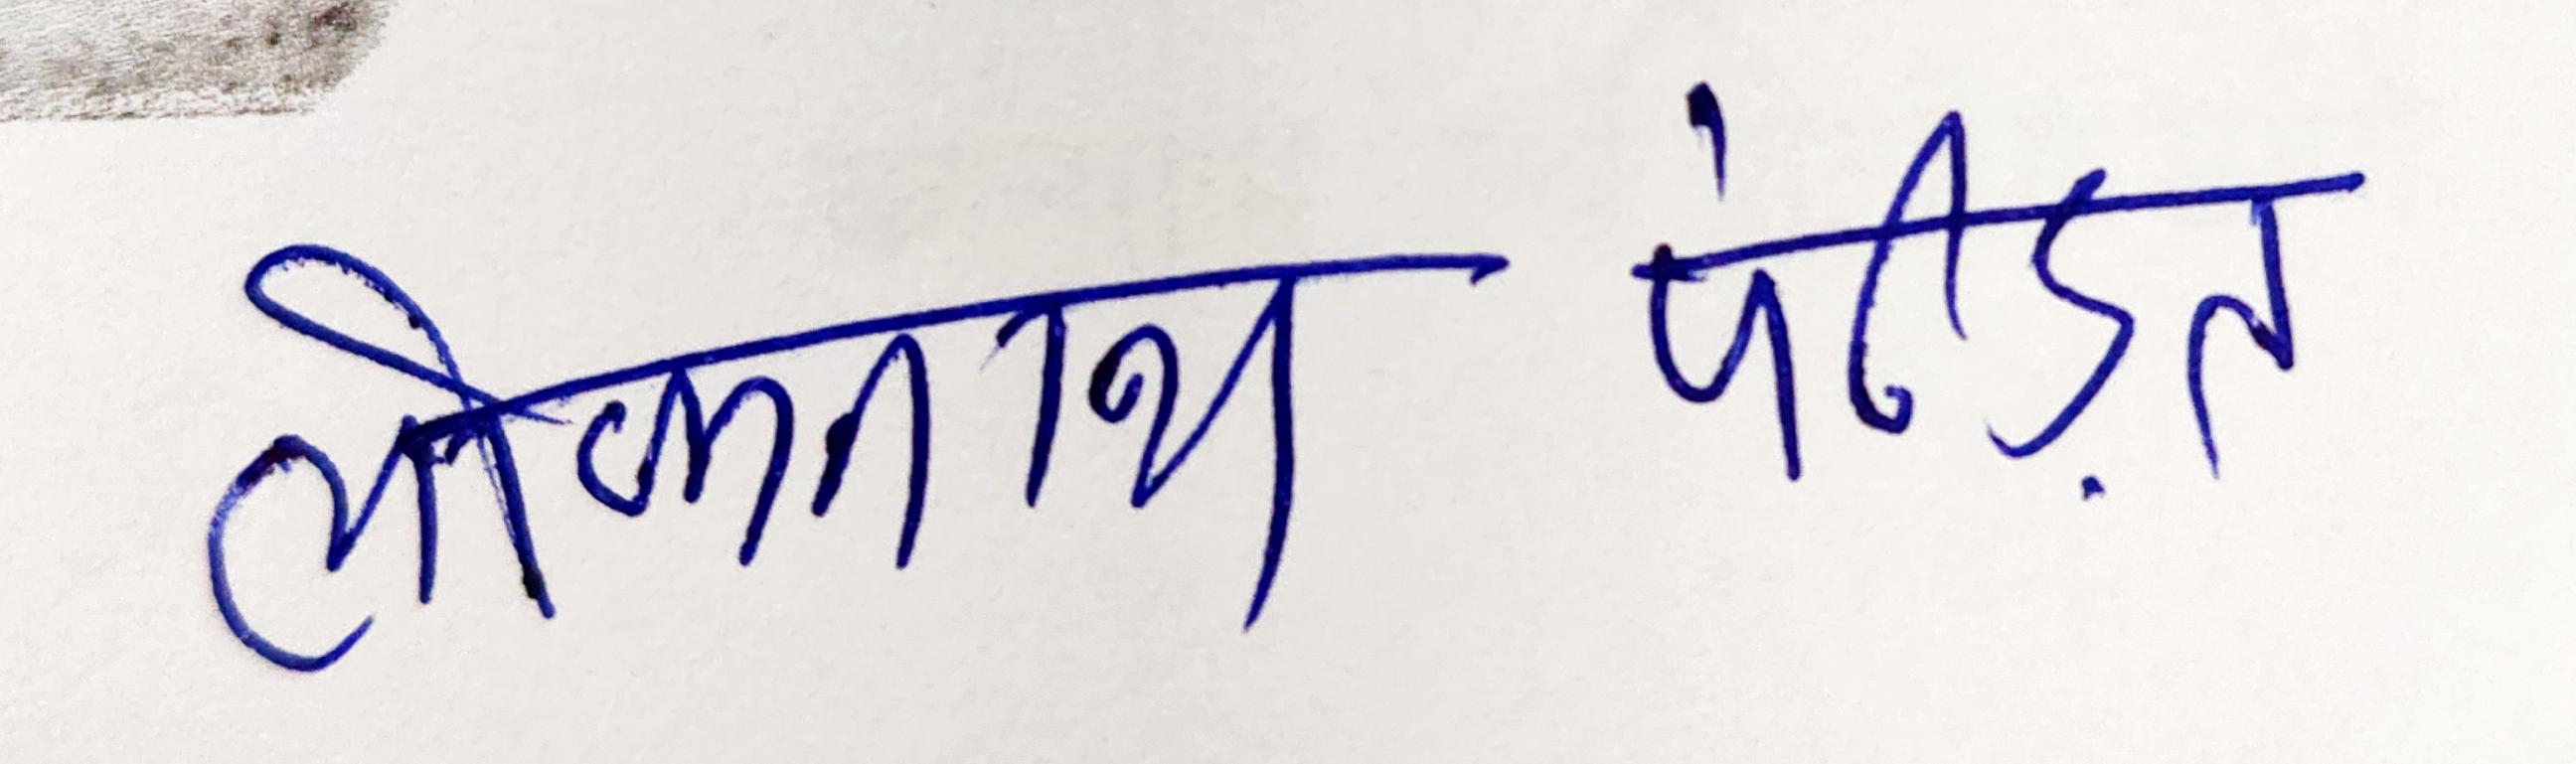 लोकनाथ पंडि़त